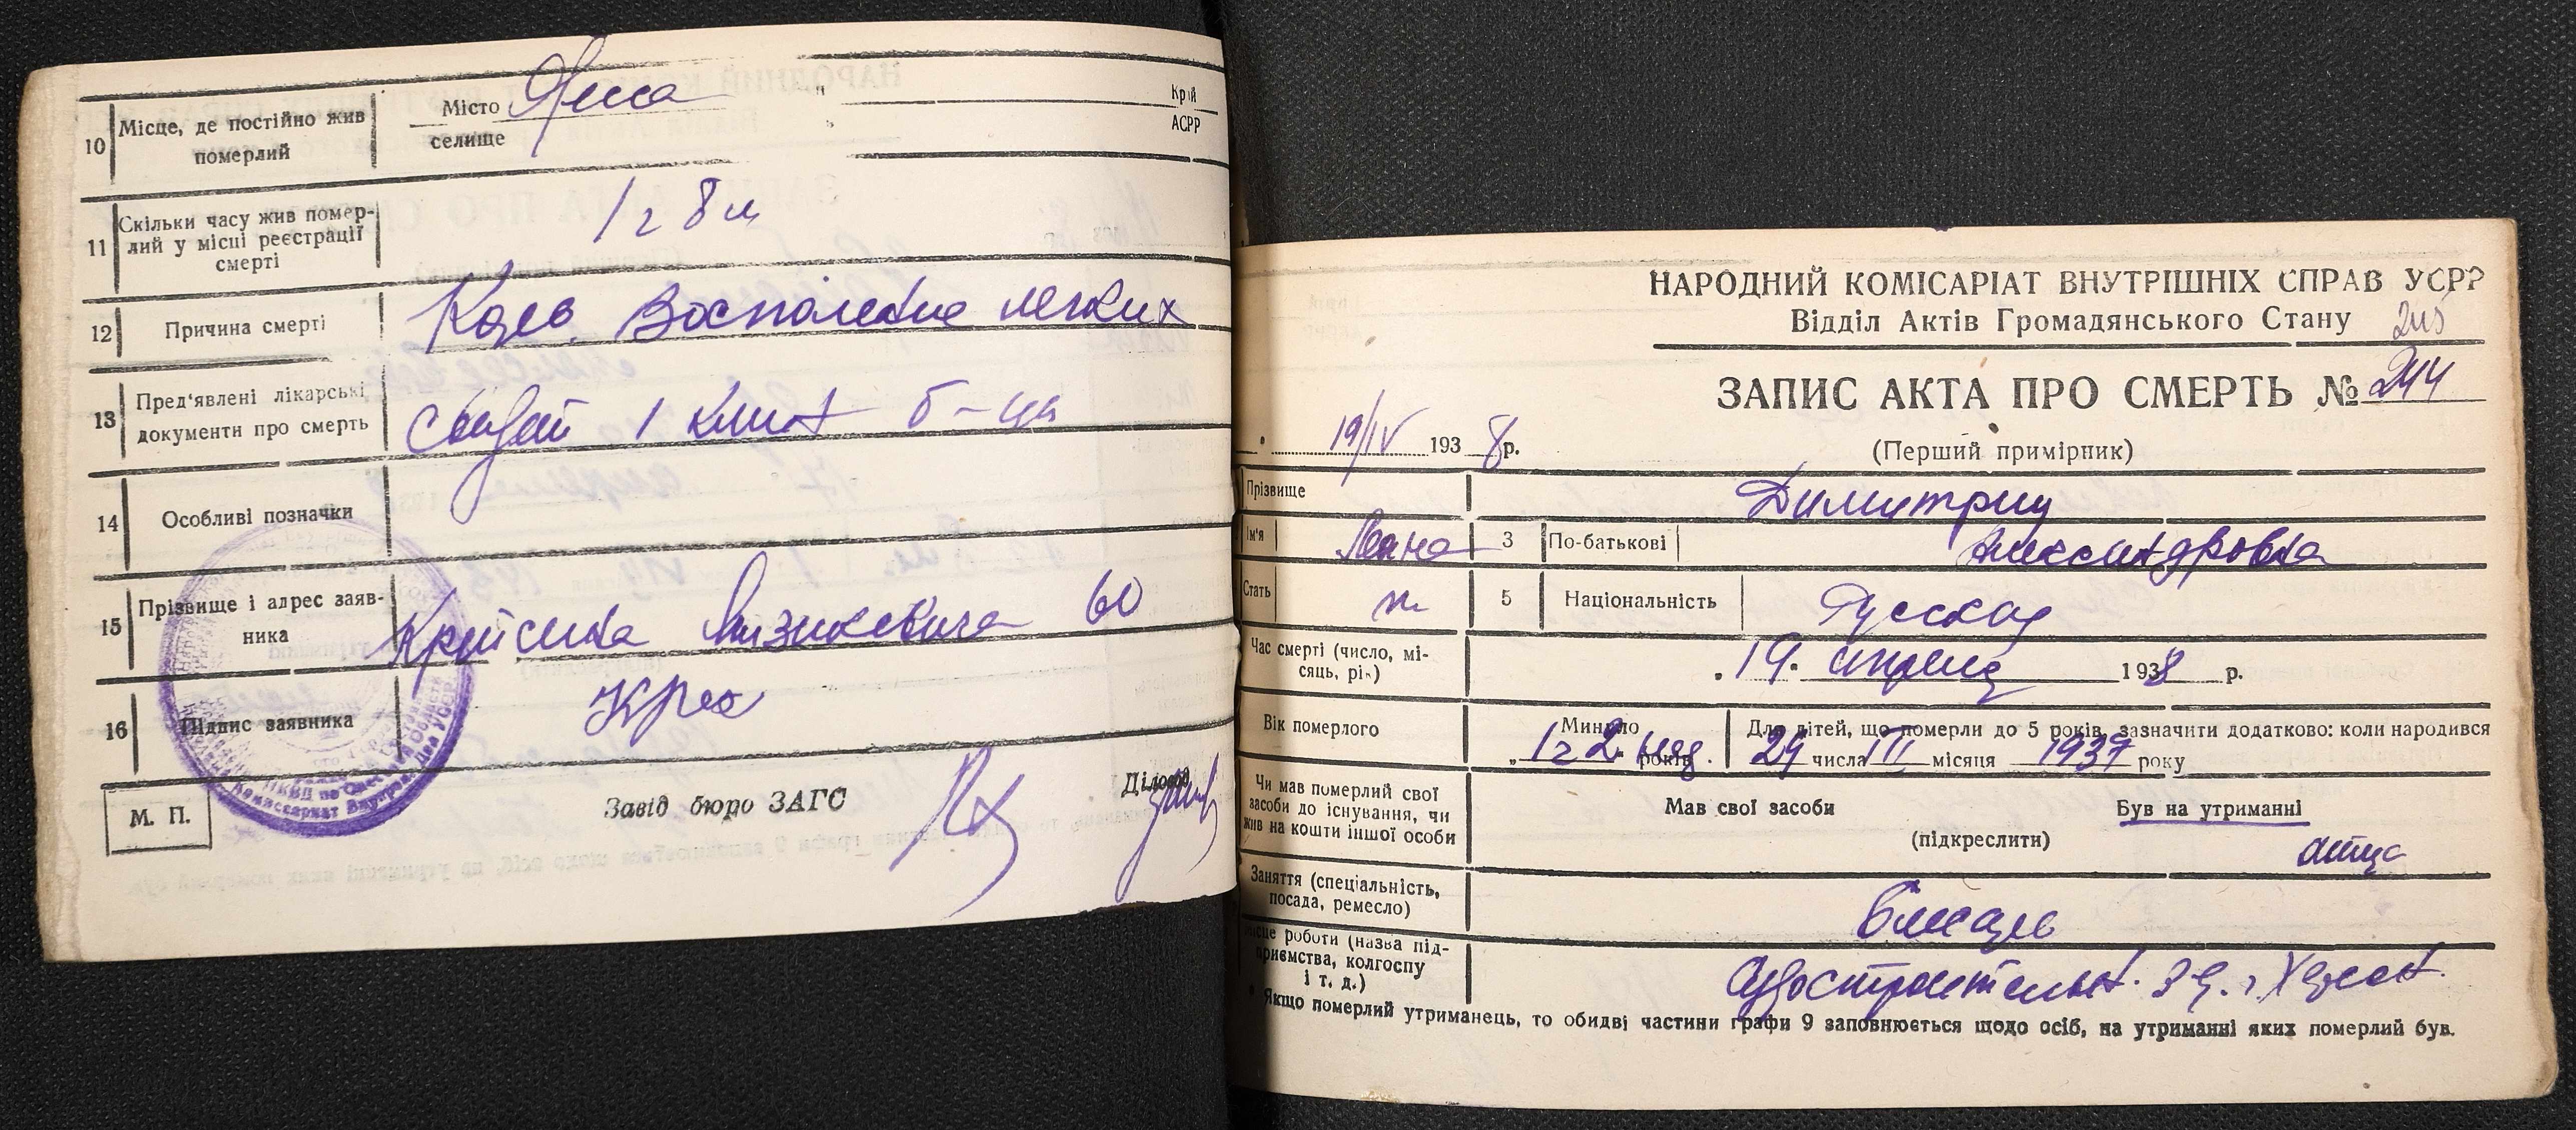 10 Місце, де постійно жив померлий
Місто
селище
Край
АСРР
11 Скільки часу жив помер-
лий у місці реєстрації
смерті
1 г 8 м
12 Причина смерті
Корь. Воспаление легких
13 Пред'явлені лікарські
документи про смерть
1 клин б-ца
14 Особливі позначки
15 Прізвище і адрес заяв-
ника
60
16 Підпис заявника
М. П.
Завід бюро ЗАГС
Діловод
НАРОДНИЙ КОМІСАРІАТ ВНУТРІШНІХ СПРАВ УСРР
Відділ Актів Громадянського Стану
245
ЗАПИС АКТА ПРО СМЕРТЬ № 244
19/IV 1938 р.
(Перший примірник)
Прізвище
Димитриц
Ім'я
3 По-батькові Александровна
Стать ж
5 Національність Русская
Час смерті (число, мі-
сяць, рік)
19. апреля 1938 р.
Вік померлого
Минуло
1 г 2 нед. років
Для дітей, що померли до 5 років, зазначити додатково: коли народився
29 числа III місяця 1937 року
Чи мав померлий свої
засоби до існування, чи
жив на кошти іншої особи
Мав свої засоби
Був на утриманні
(підкреслити)
отца
Заняття (спеціальність,
посада, ремесло)
слесарь
Місце роботи (назва під-
приємства, колгоспу
і т. д.)
Судостроительн. зд. г Херсон.
* Якщо померлий утриманець, то обидві частини графи 9 заповнюється щодо осіб, на утриманні яких померлий був.